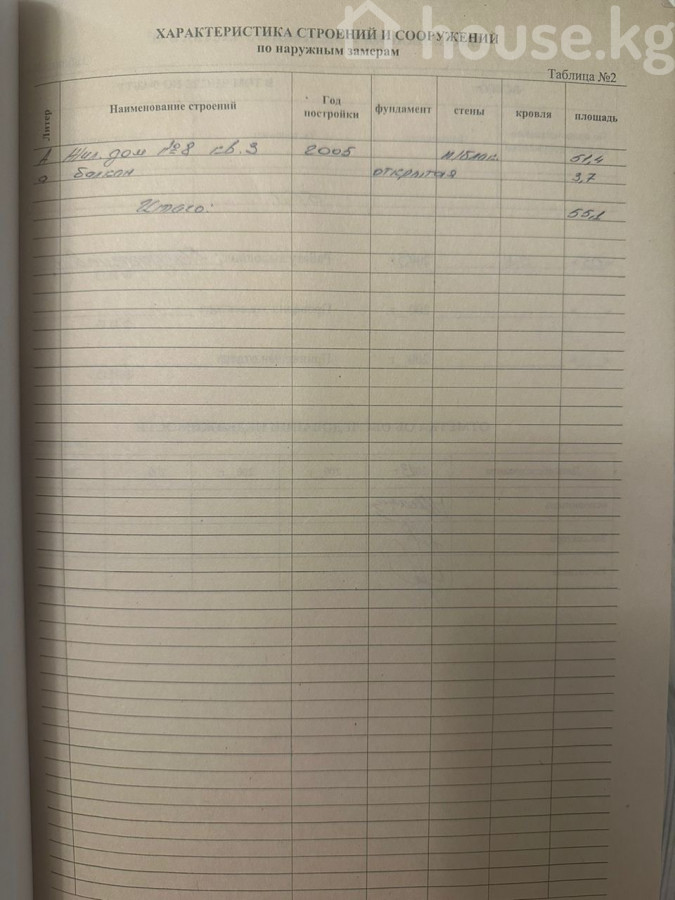 house.kg
ХАРАКТЕРИСТИКА СТРОЕНИЙ И СООРУЖЕНИЙ
по наружным замерам
Таблица №2
Литер Наименование строений Год постройки фундамент стены кровля площадь
А Жил. дом №8 кв. 3 2005 51,4
а балкон открытая 3,7
Итого: 55,1